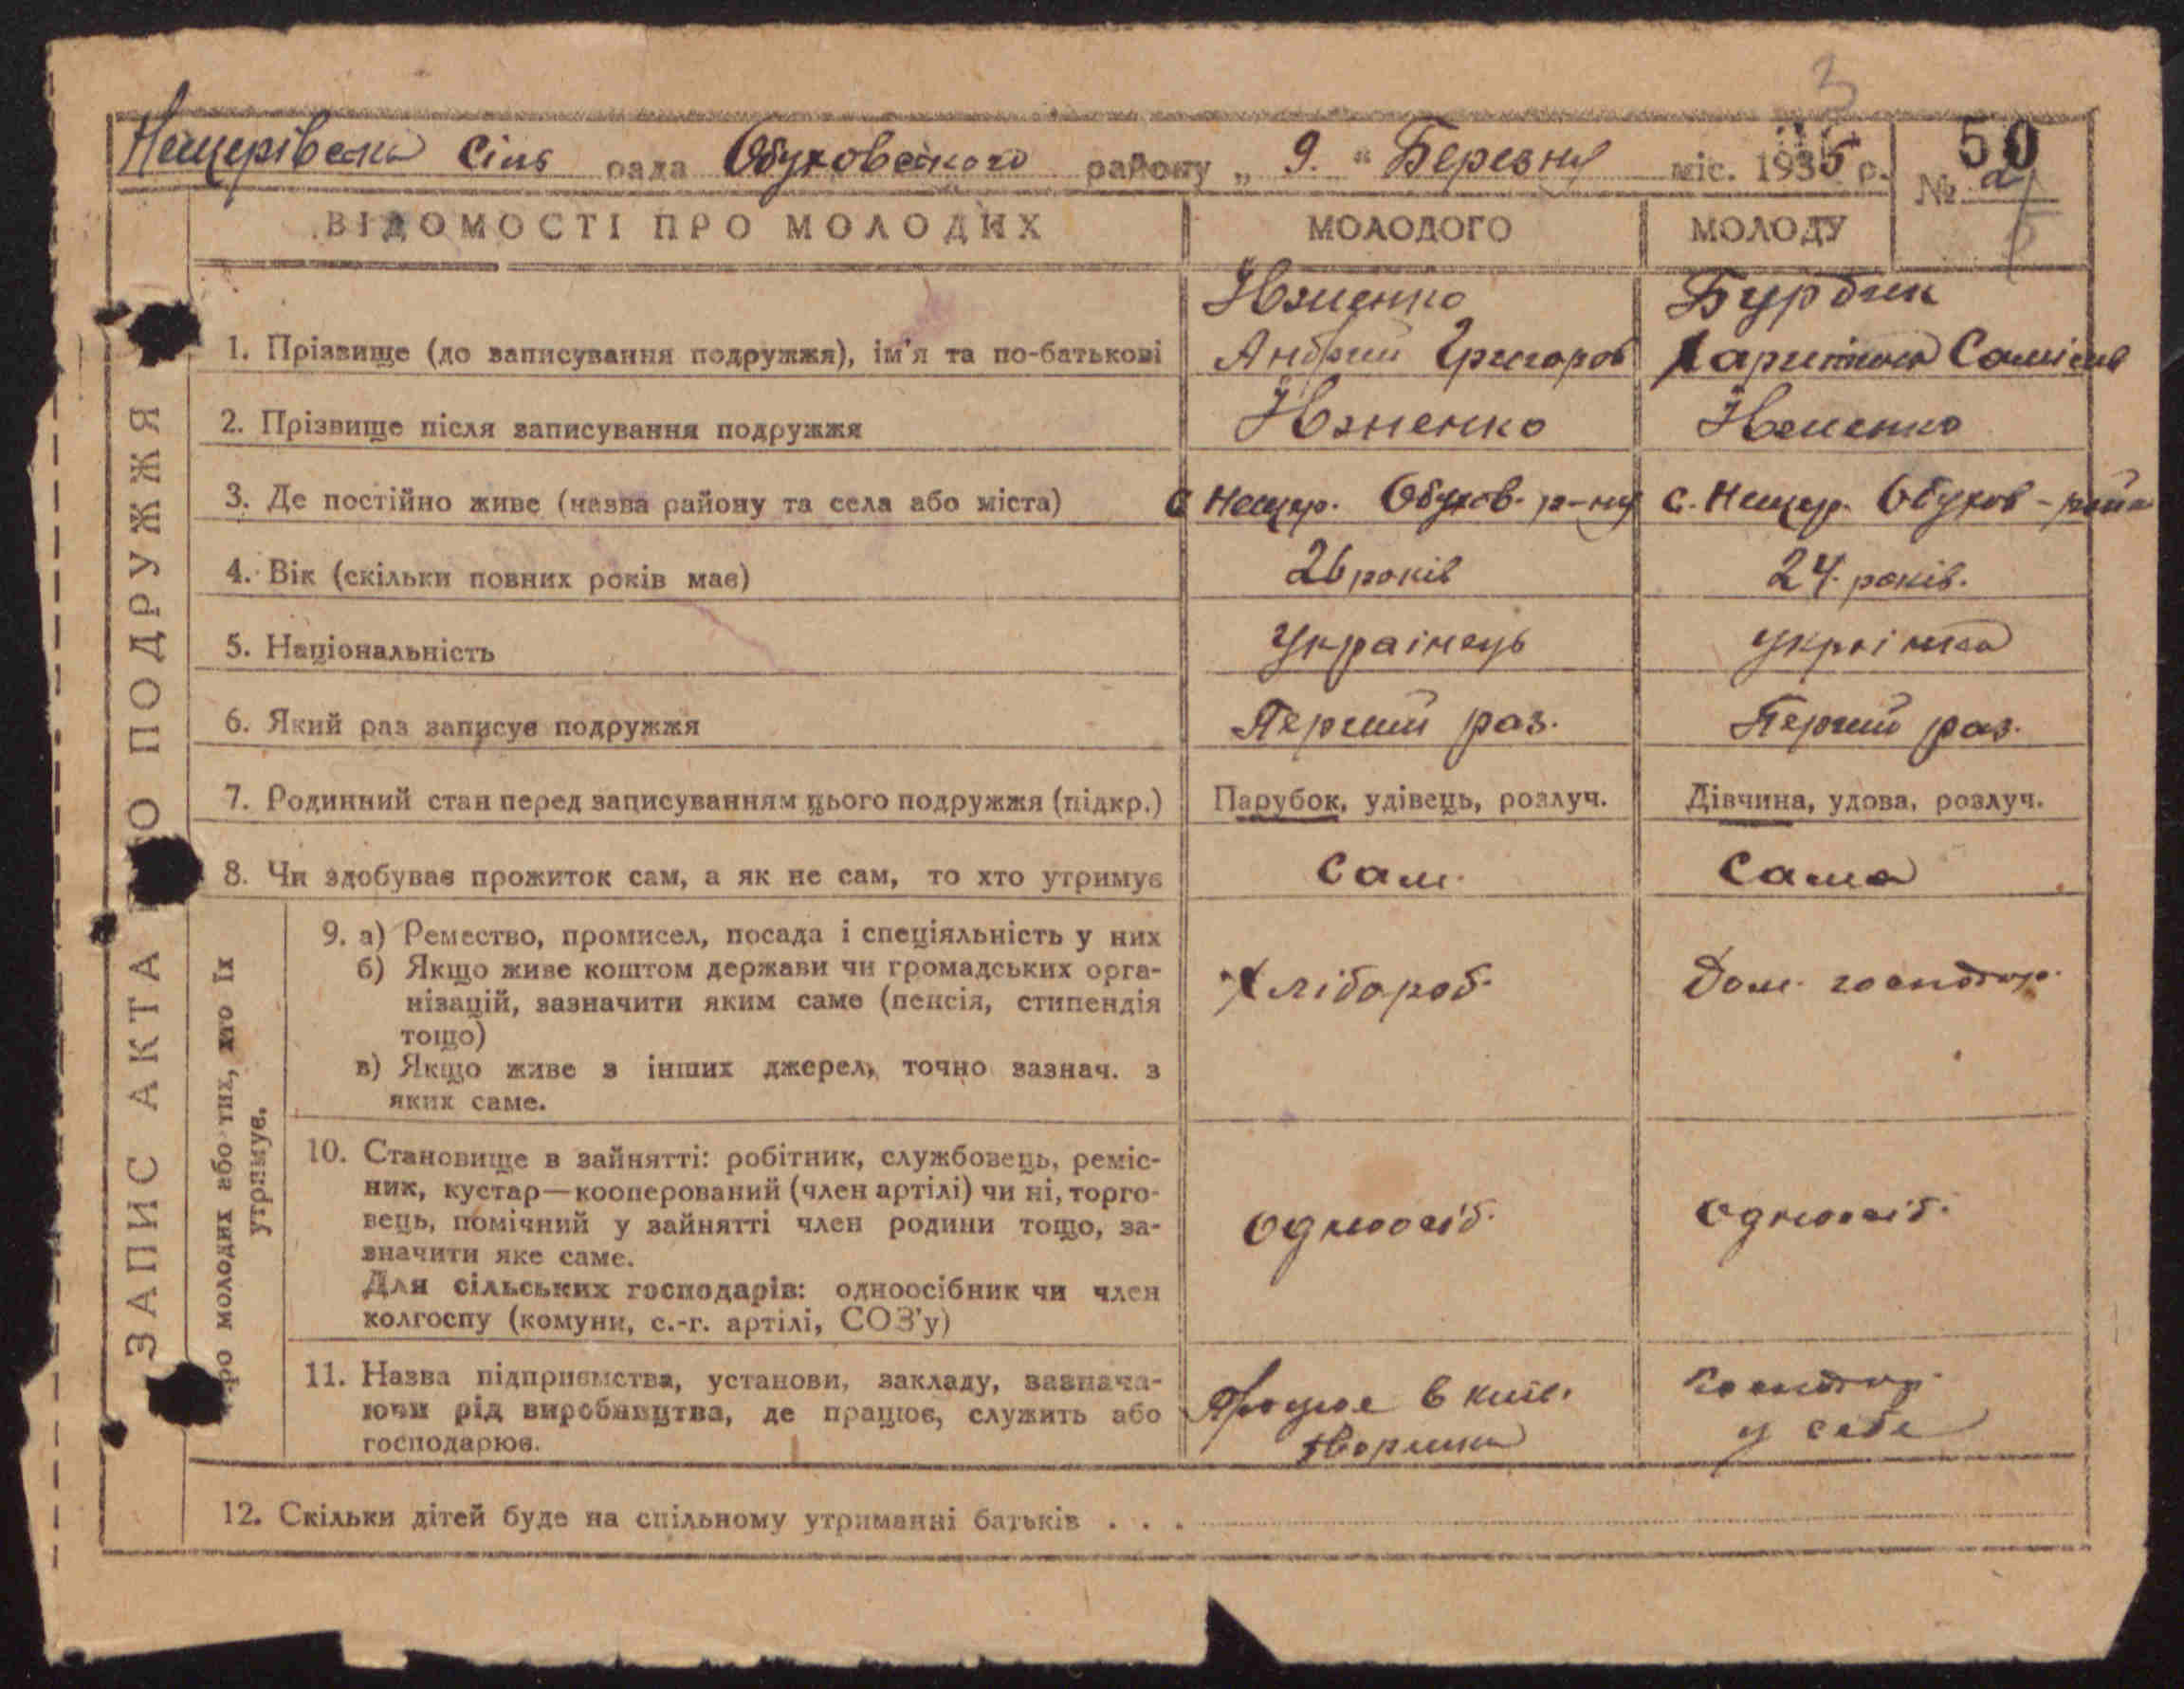 3
Нещерівська Сіль рада Обуховського району „ 9. “ Березня міс. 1935 р.
50
№
ВІДОМОСТІ ПРО МОЛОДИХ
МОЛОДОГО
МОЛОДУ
ЗАПИС АКТА ПРО ПОДРУЖЖЯ
1. Прізвище (до записування подружжя), ім'я та по-батькові
Андрий Григоров
Бурдик
Харитина
2. Прізвище після записування подружжя
3. Де постійно живе (назва району та села або міста)
с Нещер. Обухов. р-ну
с. Нещер. Обухов - райн
4. Вік (скільки повних років має)
26 років
24. років.
5. Національність
Українець
Українка
6. Який раз записує подружжя
Перший раз.
Перший раз.
7. Родинний стан перед записуванням цього подружжя (підкр.)
Парубок, удівець, розлуч.
Дівчина, удова, розлуч.
8. Чи здобуває прожиток сам, а як не сам, то хто утримує
Сам.
Сама
Про молодих або тих, хто їх
утримує.
9. а) Ремество, промисел, посада і спеціяльність у них
б) Якщо живе коштом держави чи громадських орга-
нізацій, зазначити яким саме (пенсія, стипендія
тощо)
в) Якщо живе з інших джерел, точно зазнач. з
яких саме.
Хлібороб.
Дом. господар.
10. Становище в зайнятті: робітник, службовець, реміс-
ник, кустар—кооперований (член артілі) чи ні, торго-
вець, помічний у зайнятті член родини тощо, за-
значити яке саме.
Для сільських господарів: одноосібник чи член
колгоспу (комуни, с.-г. артілі, СОЗ'у)
Одноосіб.
Одноосіб.
11. Назва підприємства, установи, закладу, зазнача-
ючи рід виробництва, де працює, служить або
господарює.
Працює в
господар.
у себе
12. Скільки дітей буде на спільному утриманні батьків . . .